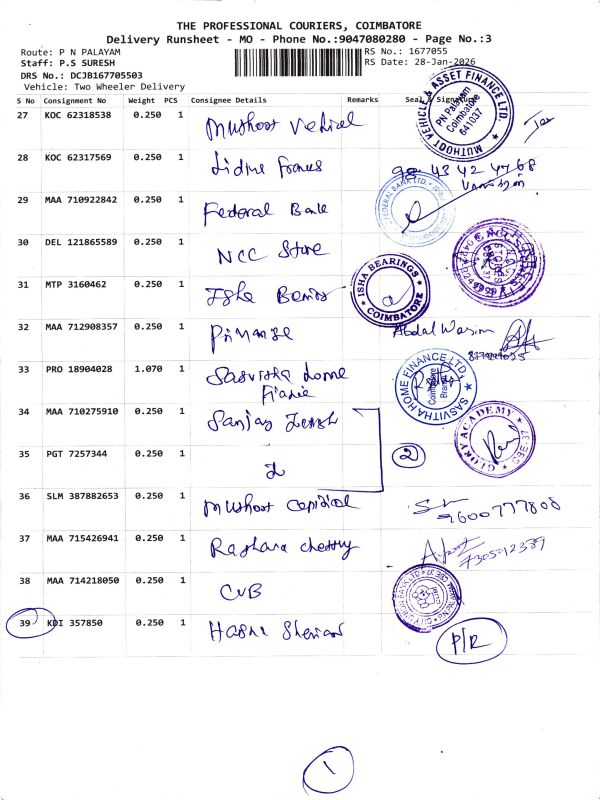 THE PROFESSIONAL COURIERS, COIMBATORE
Delivery Runsheet - MO - Phone No.:9047080280 - Page No.:3
Route: P N PALAYAM
RS No.: 1677055
Staff: P.S SURESH
RS Date: 28-Jan-2026
DRS No.: DCJB167705503
Vehicle: Two Wheeler Delivery
S No Consignment No Weight PCS Consignee Details Remarks Seal & Signature
27 KOC 62318538 0.250 1 Muthoot Vehical
MUTHOOT VEHICLE & ASSET FINANCE LTD.
PN Palayam
Coimbatore
641037
28 KOC 62317569 0.250 1
98 43 42 47 68
29 MAA 710922842 0.250 1 Federal Bank
FEDERAL BANK LTD.
30 DEL 121865589 0.250 1 NCC Store
STORES
31 MTP 3160462 0.250 1 Isha
ISHA BEARINGS
COIMBATORE
32 MAA 712908357 0.250 1
Abdal
33 PRO 18904028 1.070 1 Sasvitha Home
SASVITHA HOME FINANCE LTD.
Coimbatore
Branch
34 MAA 710275910 0.250 1 Sanjay
GLORY ACADEMY
35 PGT 7257344 0.250 1
2
36 SLM 387882653 0.250 1 Muthoot Capital
9600777808
37 MAA 715426941 0.250 1 chetty
38 MAA 714218050 0.250 1 CUB
CITY UNION BANK LTD
39 KDI 357850 0.250 1
P/R
1